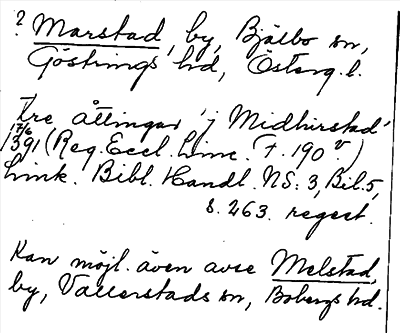 ? Marstad, by, Bjälbo sn,
Göstrings hd, Österg. l.
tre åttingar 'j Midhirstad'
17/6 1391 (Reg. Eccl. Linc. f. 190 v.)
Link. Bibl. Handl. NS: 3, Bil. 5,
s. 263. regest.
Kan möjl. även avse Melstad,
by, Vallerstads sn, Bobergs hd.